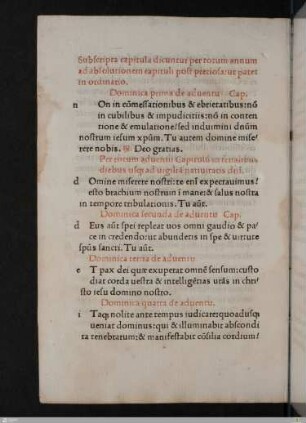 Subscripta capitula dicuntur per totum annum
ad absolutionem capituli post preciosa: ut patet
in ordinario.
Dominica prima de aduentu Cap.
n On in cōmessationibus & ebrietatibus: nō
in cubilibus & impudicitiis: nō in conten
tione & emulatione/ sed induimini dnūm
nostrum iesum xpūm. Tu autem domine mise/
rere nobis. Deo gratias.
Per totum aduentū Capitulū in ferialibus
diebus usq; ad uigiliā natiuitatis dnī.
d Omine miserere nostri: te enī expectauimus/
esto brachium nostrum ī mane: & salus nostra
in tempore tribulationis. Tu aūt.
Dominica secunda de aduentu Cap.
d Eus aūt spei repleat uos omni gaudio & pa/
ce in credendo: ut abundetis in spe & uirtute
spūs sancti. Tu aūt.
Dominica tertia de aduentu
e T pax dei quæ exuperat omnē sensum: custo
diat corda uestra & intelligētias urās in chri/
sto iesu domino nostro.
Dominica quarta de aduentu.
i Taq; nolite ante tempus iudicare: quoadusq;
ueniat dominus: qui & illuminabit abscondi
ta tenebrarum: & manifestabit cōsilia cordium/